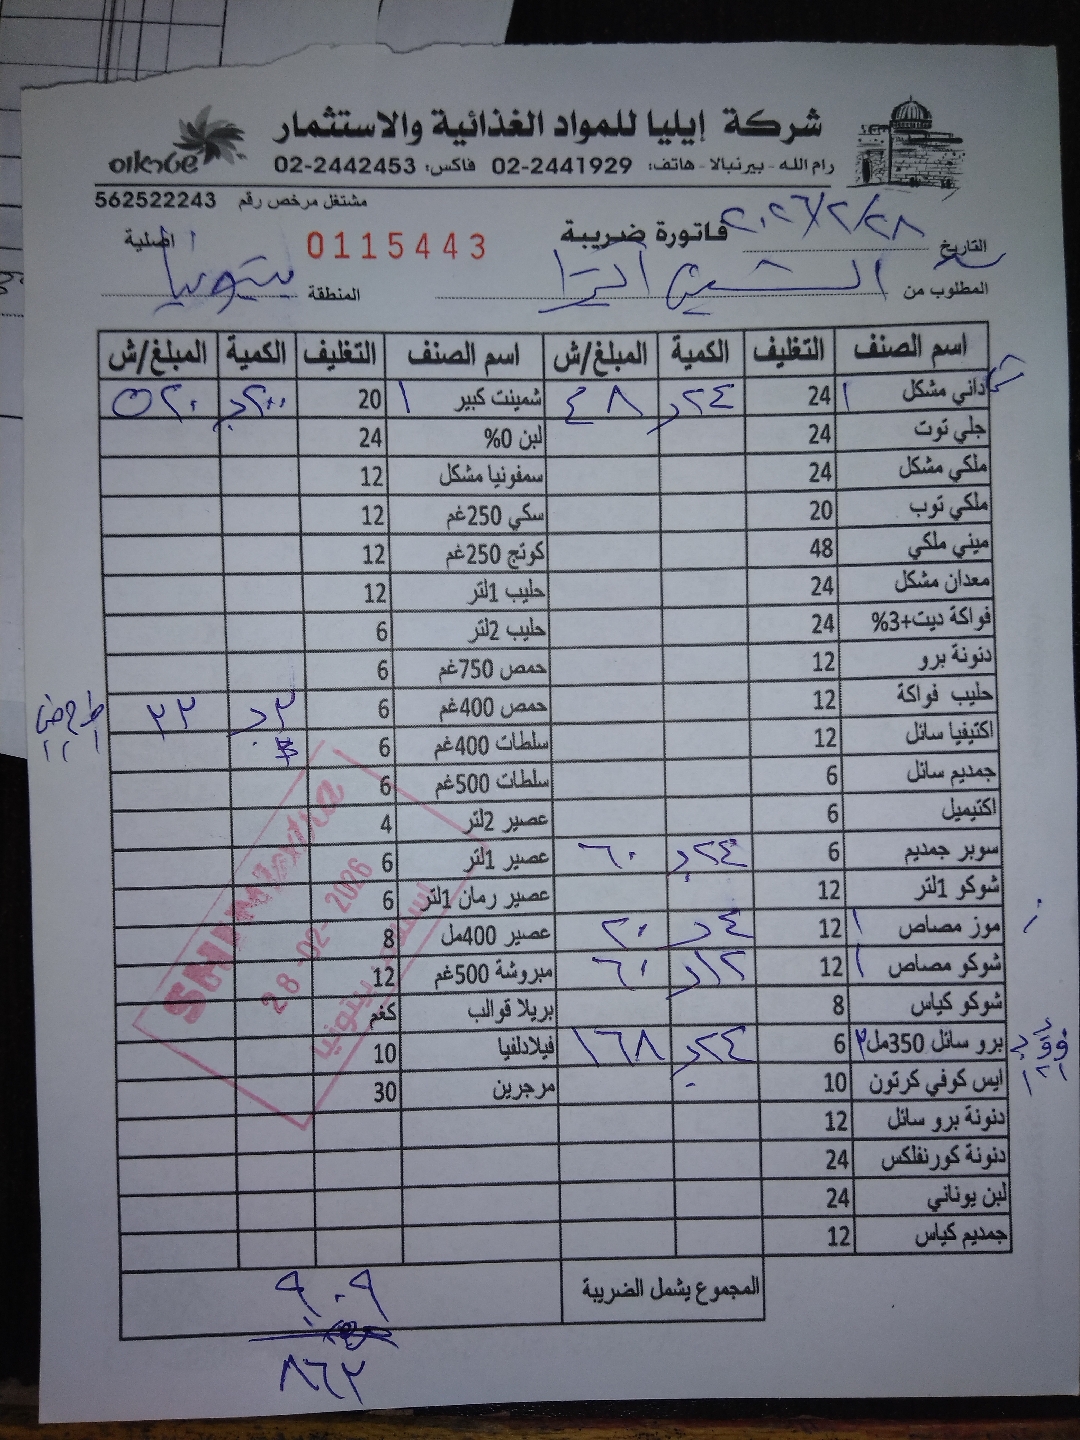 شركة إيليا للمواد الغذائية والاستثمار
رام الله - بيرنبالا - هاتف: 02-2441929 فاكس: 02-2442453
مشتغل مرخص رقم 562522243
التاريخ ٢٠٢٦/٢/٢٨ فاتورة ضريبة 0115443 اصلية
المطلوب من المنطقة بيتونيا
اسم الصنف التغليف الكمية المبلغ/ش اسم الصنف التغليف الكمية المبلغ/ش
داني مشكل ١ 24 ٢٤ ٤٨ شمينت كبير ١ 20 ٢٠٠ ٥٢٠
جلي توت 24 لبن 0% 24
ملكي مشكل 24 سمفونيا مشكل 12
ملكي توب 20 سكي 250غم 12
ميني ملكي 48 كوتج 250غم 12
معدان مشكل 24 حليب 1لتر 12
فواكة ديت+3% 24 حليب 2لتر 6
دنونة برو 12 حمص 750غم 6
حليب فواكة 12 حمص 400غم 6 ٣ ٣٣
اكتيفيا سائل 12 سلطات 400غم 6
جمديم سائل 6 سلطات 500غم 6
اكتيميل 6 عصير 2لتر 4
سوبر جمديم 6 ٢٤ ٦٠ عصير 1لتر 6
شوكو 1لتر 12 عصير رمان 1لتر 6
موز مصاص ١ 12 ٤ ٢٠ عصير 400مل 8
شوكو مصاص ١ 12 ١٢ ٦٠ مبروشة 500غم 12
شوكو كياس 8 بريلا قوالب كغم
برو سائل 350مل ٣ 6 ٢٤ ١٦٨ فيلادلفيا 10
ايس كوفي كرتون 10 مرجرين 30
دنونة برو سائل 12
دنونة كورنفلكس 24
لبن يوناني 24
جمديم كياس 12
28-02-2026
المجموع يشمل الضريبة ٩٠٩
٨٦٣